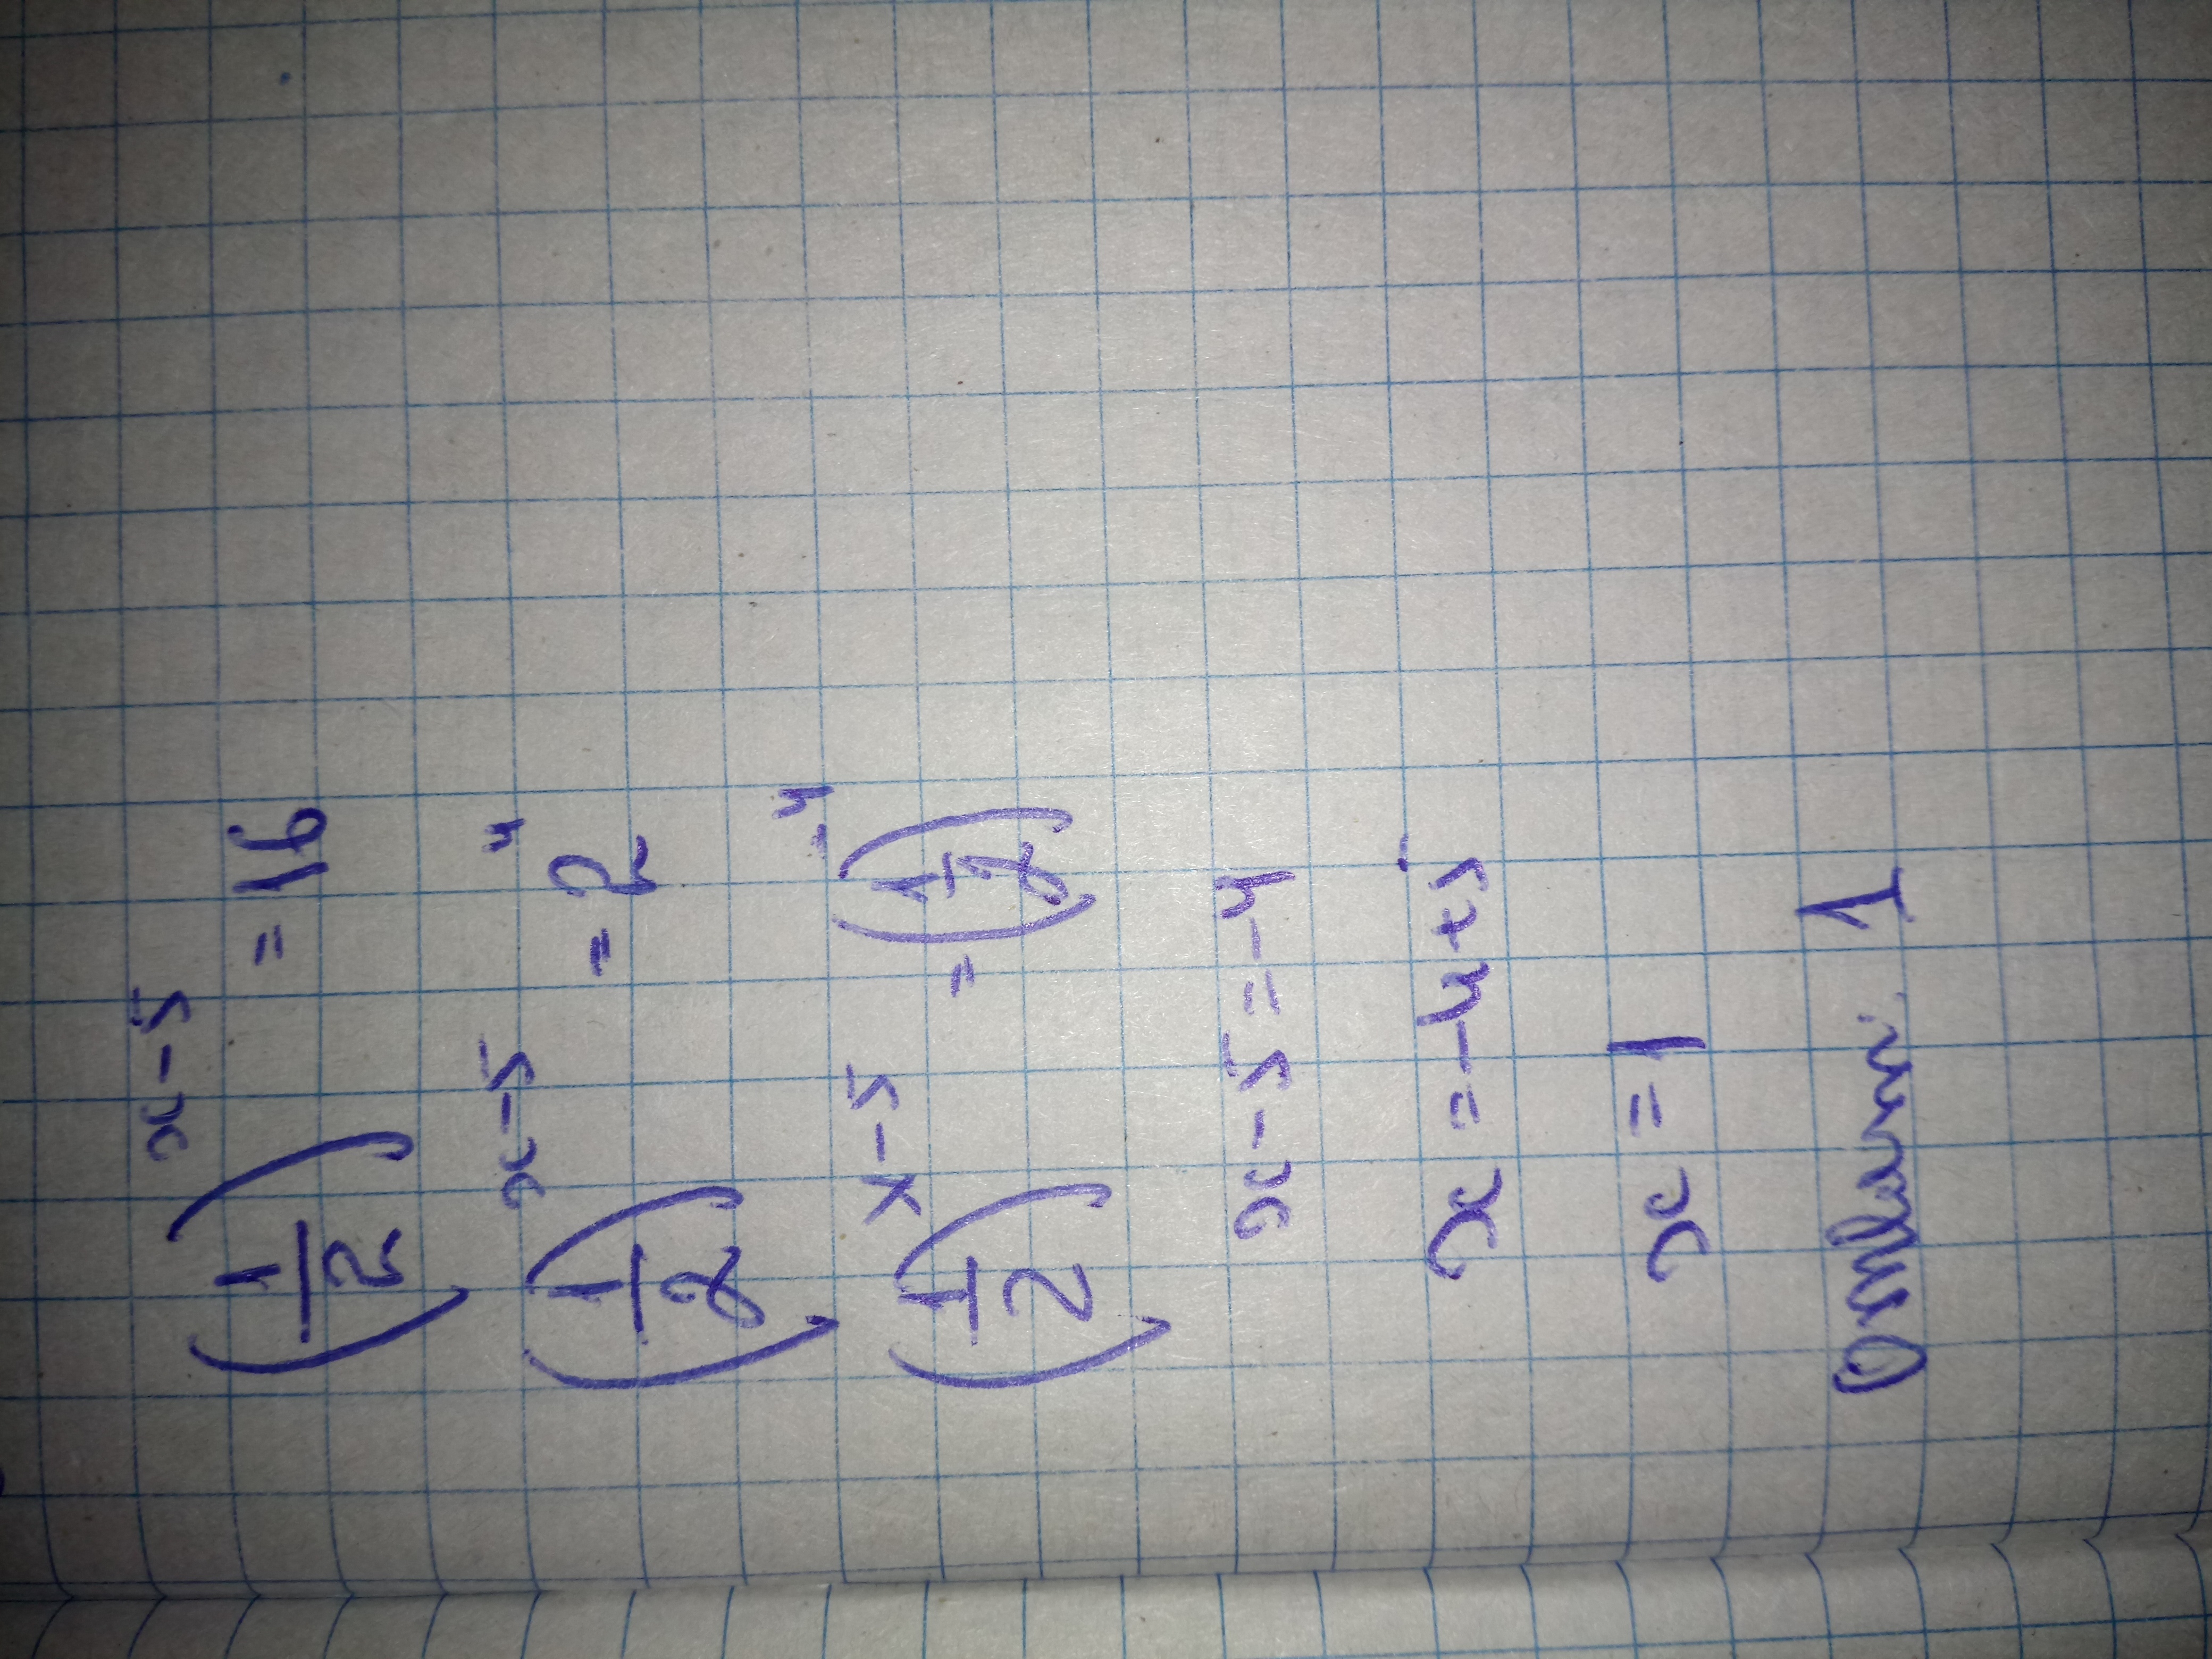 (1/2)^(x-5) = 16
(1/2)^(x-5) = 2^4
(1/2)^(x-5) = (1/2)^(-4)
x-5=-4
x=-4+5
x=1
Ответ: 1